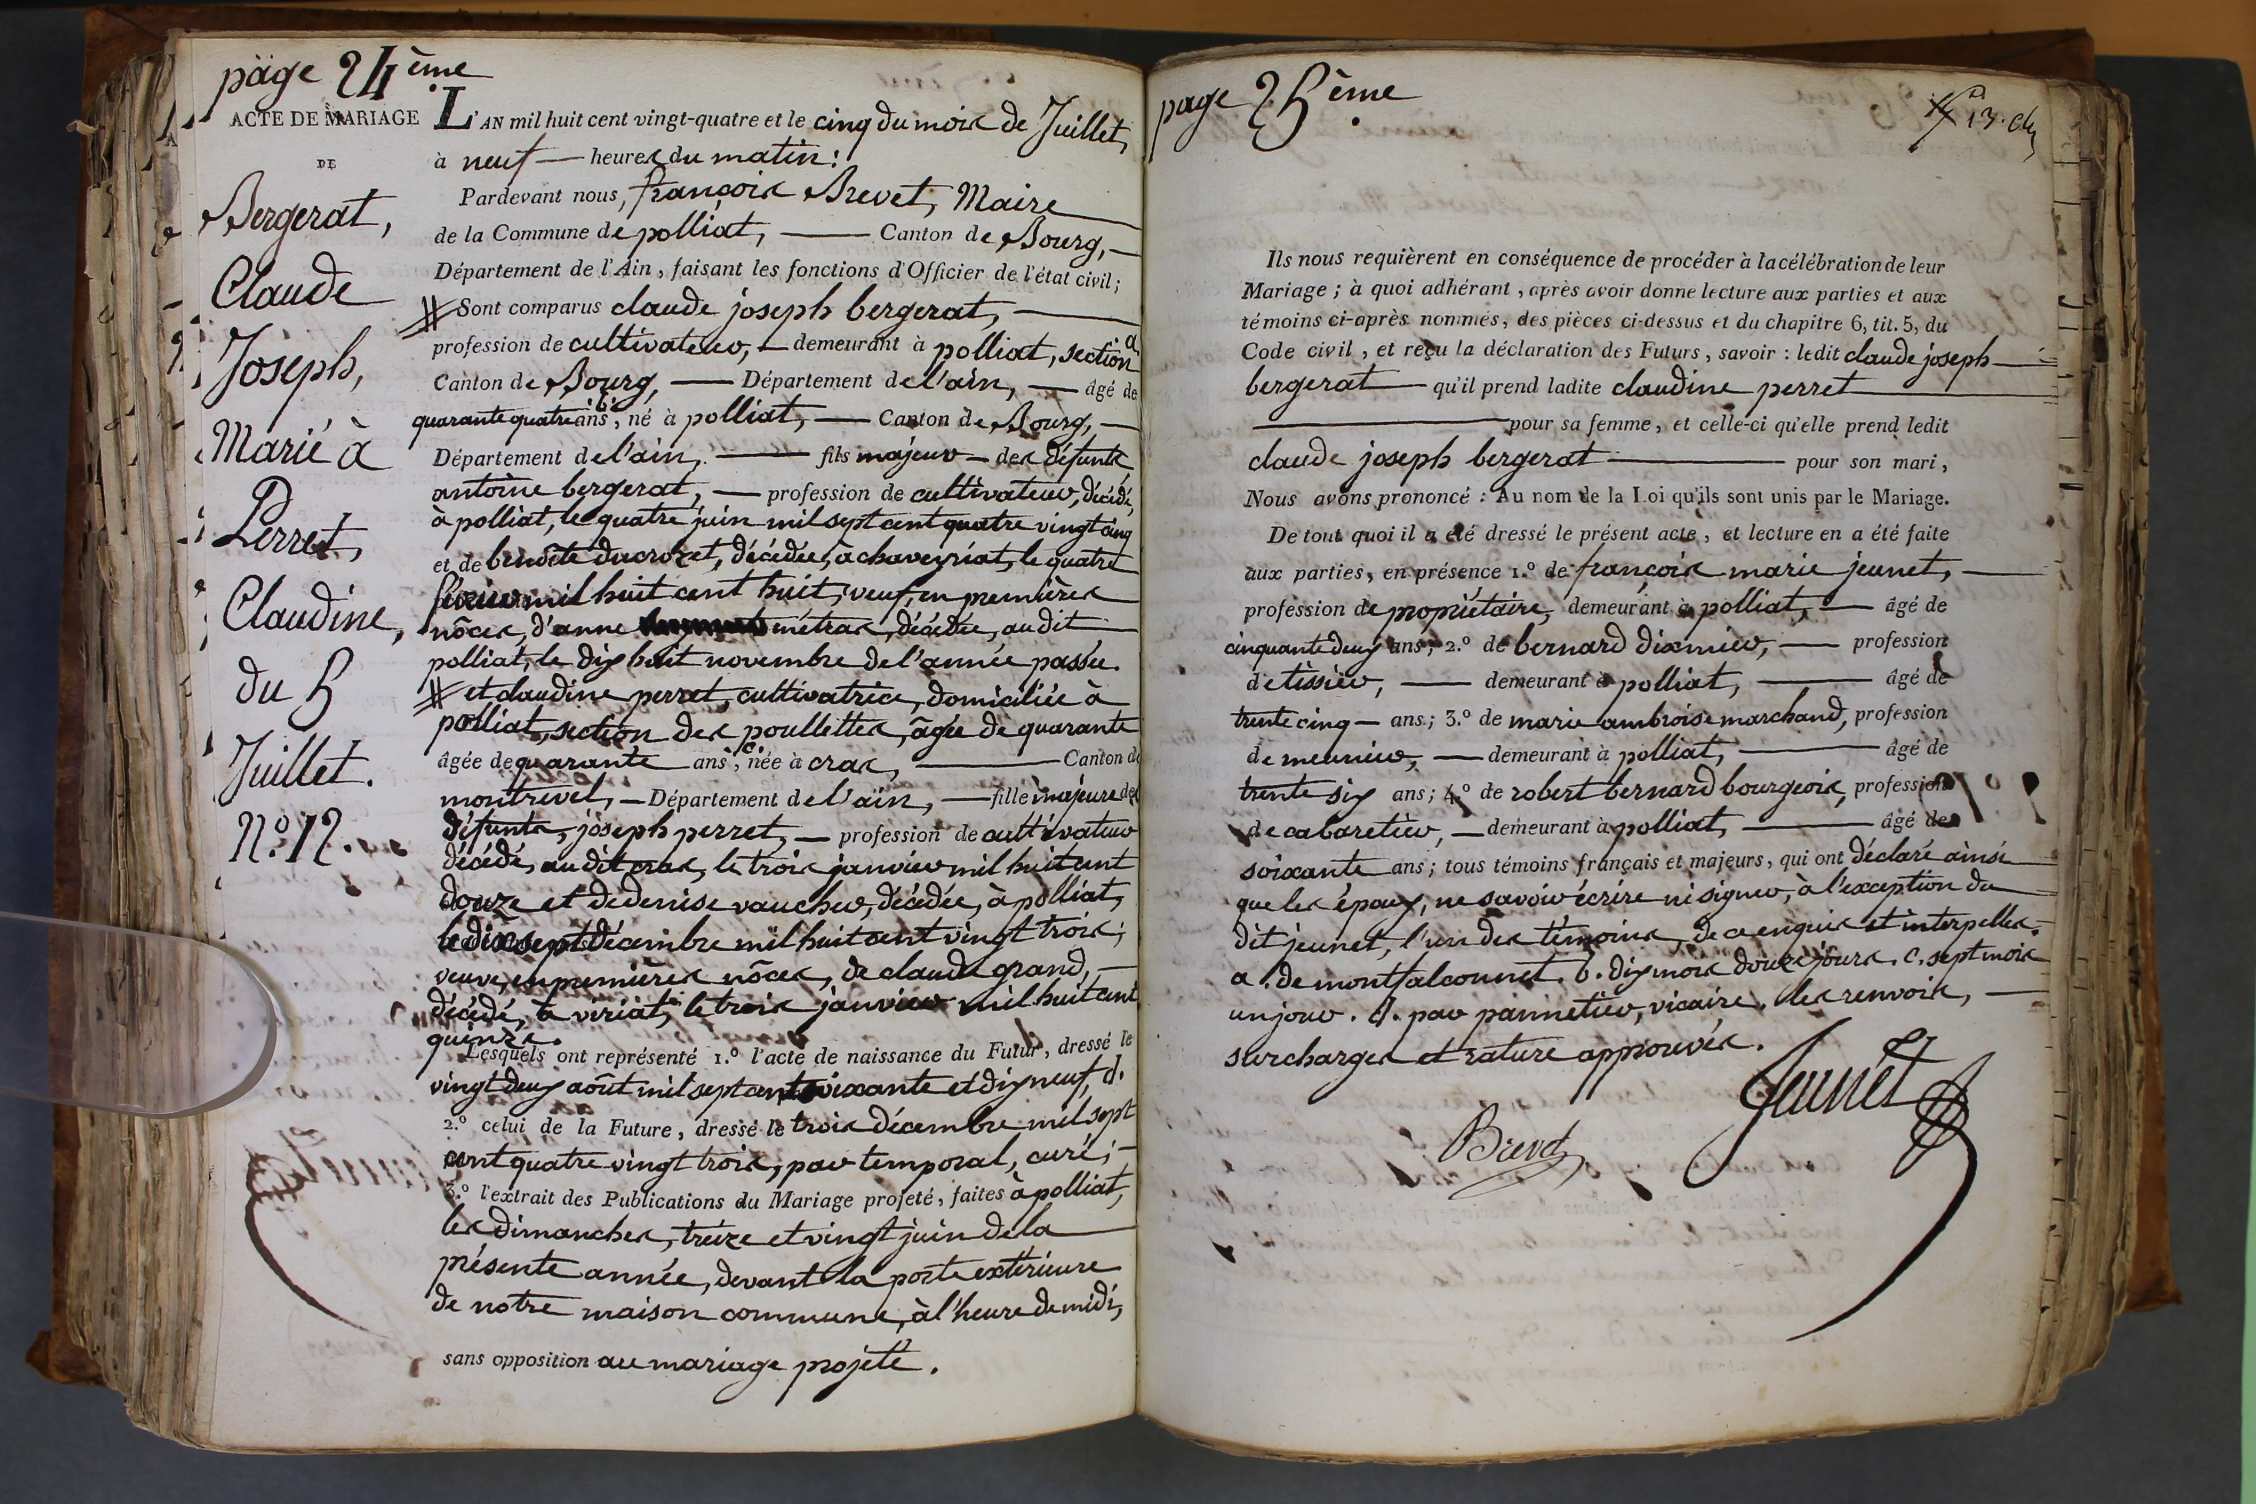 page 24ème
ACTE DE MARIAGE
DE
Bergerat,
Claude
Joseph,
Marié à
Perret,
Claudine,
du 5
Juillet.
N.º 12.
L'AN mil huit cent vingt-quatre et le cinq du mois de Juillet,
à neuf — heures du matin :
Pardevant nous, françois Brevet, Maire
de la Commune de polliat, — Canton de Bourg, —
Département de l'Ain, faisant les fonctions d'Officier de l'état civil ;
# Sont comparus claude joseph bergerat, —
profession de cultivateur, — demeurant à polliat, section a
Canton de Bourg, — Département de l'ain, — âgé de
quarante quatre ans b., né à polliat, — Canton de Bourg, —
Département de l'ain, — fils majeur — des défunts
antoine bergerat, — profession de cultivateur, décédé,
à polliat, le quatre juin mil sept cent quatre vingt cinq
et de benoite ducrozet, décédée, à chaveyriat, le quatre
février mil huit cent huit, veuf, en premières
nôces, d'anne métras, décédée, audit
polliat, le dix huit novembre de l'année passée.
# et claudine perret, cultivatrice, domiciliée à
polliat, section des poullettes, âgée de quarante
âgée de quarante ans c., née à cras, — Canton de
montrevel, — Département de l'ain, — fille majeure des
défunts, joseph perret, — profession de cultivateur
décédé, audit cras, le trois janvier mil huit cent
douze et de denise vaucher, décédée, à polliat,
le dix sept décembre mil huit cent vingt trois ;
veuve, en premières nôces, de claude grand, —
décédé, à viriat, le trois janvier mil huit cent
quinze.
Lesquels ont représenté 1.º l'acte de naissance du Futur, dressé le
vingt deux août mil sept cent soixante et dix neuf, d.
2.º celui de la Future, dressé le trois décembre mil sept
cent quatre vingt trois, par temporal, curé ; —
3.º l'extrait des Publications du Mariage projeté, faites à polliat,
les dimanches, treize et vingt juin de la
présente année, devant la porte extérieure
de notre maison commune, à l'heure de midi,
sans opposition au mariage projeté.
page 25ème
Ils nous requièrent en conséquence de procéder à la célébration de leur
Mariage ; à quoi adhérant, après avoir donné lecture aux parties et aux
témoins ci-après nommés, des pièces ci-dessus et du chapitre 6, tit. 5, du
Code civil, et reçu la déclaration des Futurs, savoir : ledit claude joseph —
bergerat — qu'il prend ladite claudine perret —
— pour sa femme, et celle-ci qu'elle prend ledit
claude joseph bergerat — pour son mari,
Nous avons prononcé : Au nom de la Loi qu'ils sont unis par le Mariage.
De tout quoi il a été dressé le présent acte, et lecture en a été faite
aux parties, en présence 1.º de françois marie jeunet, —
profession de propiétaire, demeurant à polliat, — âgé de
cinquante deux ans ; 2.º de bernard dixmier, — profession
de tissier, — demeurant à polliat, — âgé de
trente cinq — ans ; 3.º de marie ambroise marchand, profession
de meunier, — demeurant à polliat, — âgé de
trente six ans ; 4.º de robert bernard bourgeois, profession
de cabaretier, — demeurant à polliat, — âgé de
soixante ans ; tous témoins français et majeurs, qui ont déclaré ainsi
que les époux, ne savoir écrire ni signer, à l'exception du
dit jeunet, l'un des témoins, de ce enquis et interpellés.
a. de montfalconnet. b. dix mois douze jours. c. sept mois
un jour. d. par pannetier, vicaire. les renvois, —
surcharges et rature approuvés.
Jeunet
Brevet